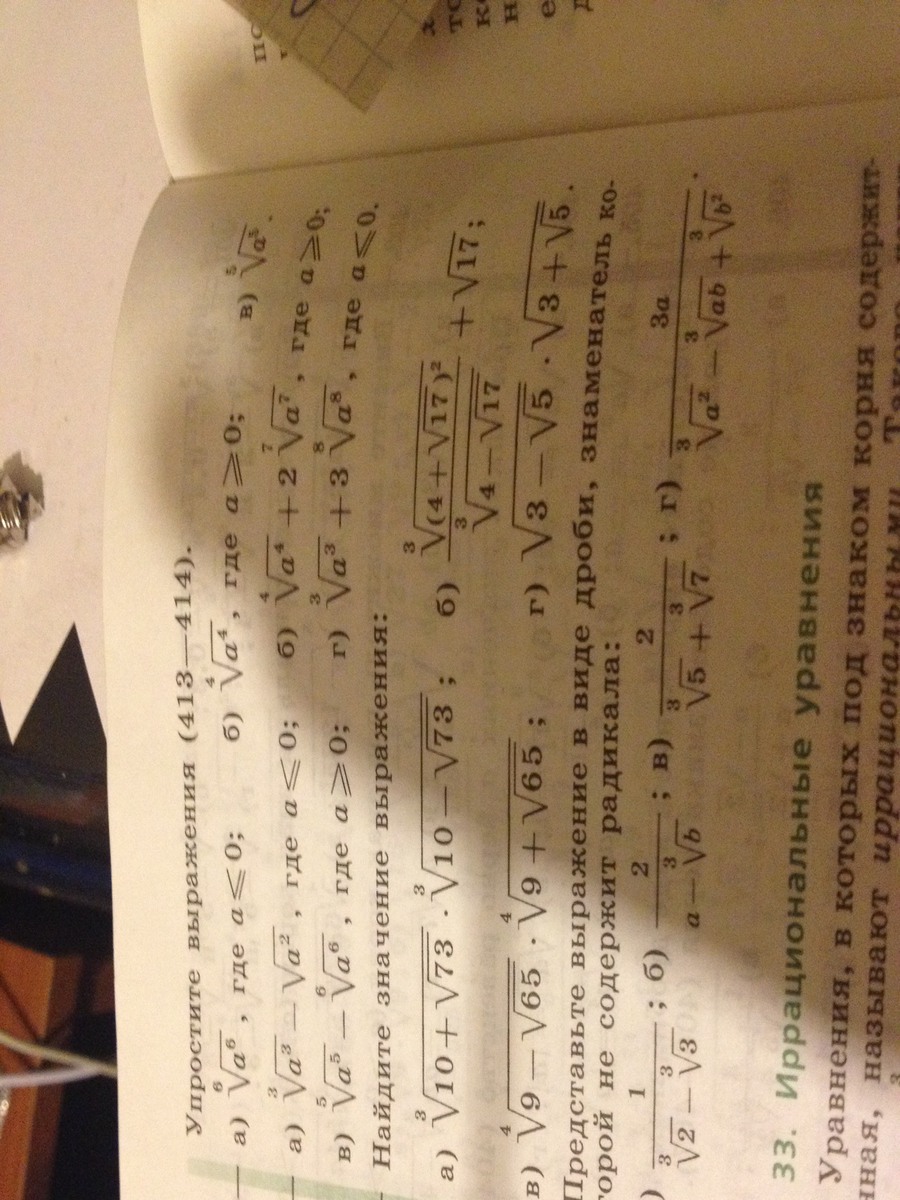 Упростите выражения (413—414).
а) ⁶√a⁶, где a ⩽ 0; б) ⁴√a⁴, где a ⩾ 0; в) ⁵√a⁵.
а) ³√a³ − √a², где a ⩽ 0; б) ⁴√a⁴ + 2 ⁷√a⁷, где a ⩾ 0;
в) ⁵√a⁵ − ⁶√a⁶, где a ⩾ 0; г) ³√a³ + 3 ⁸√a⁸, где a ⩽ 0.
Найдите значение выражения:
а) ³√(10 + √73) · ³√(10 − √73); б) ³√((4 + √17)²) / ³√(4 − √17) + √17;
в) ⁴√(9 − √65) · ⁴√(9 + √65); г) √(3 − √5) · √(3 + √5).
Представьте выражение в виде дроби, знаменатель ко-
торой не содержит радикала:
) 1 / (³√2 − ³√3); б) 2 / (a − ³√b); в) 2 / (³√5 + ³√7); г) 3a / (³√a² − ³√ab + ³√b²).
33. Иррациональные уравнения
Уравнения, в которых под знаком корня содержит-
нная, называют иррациональными.